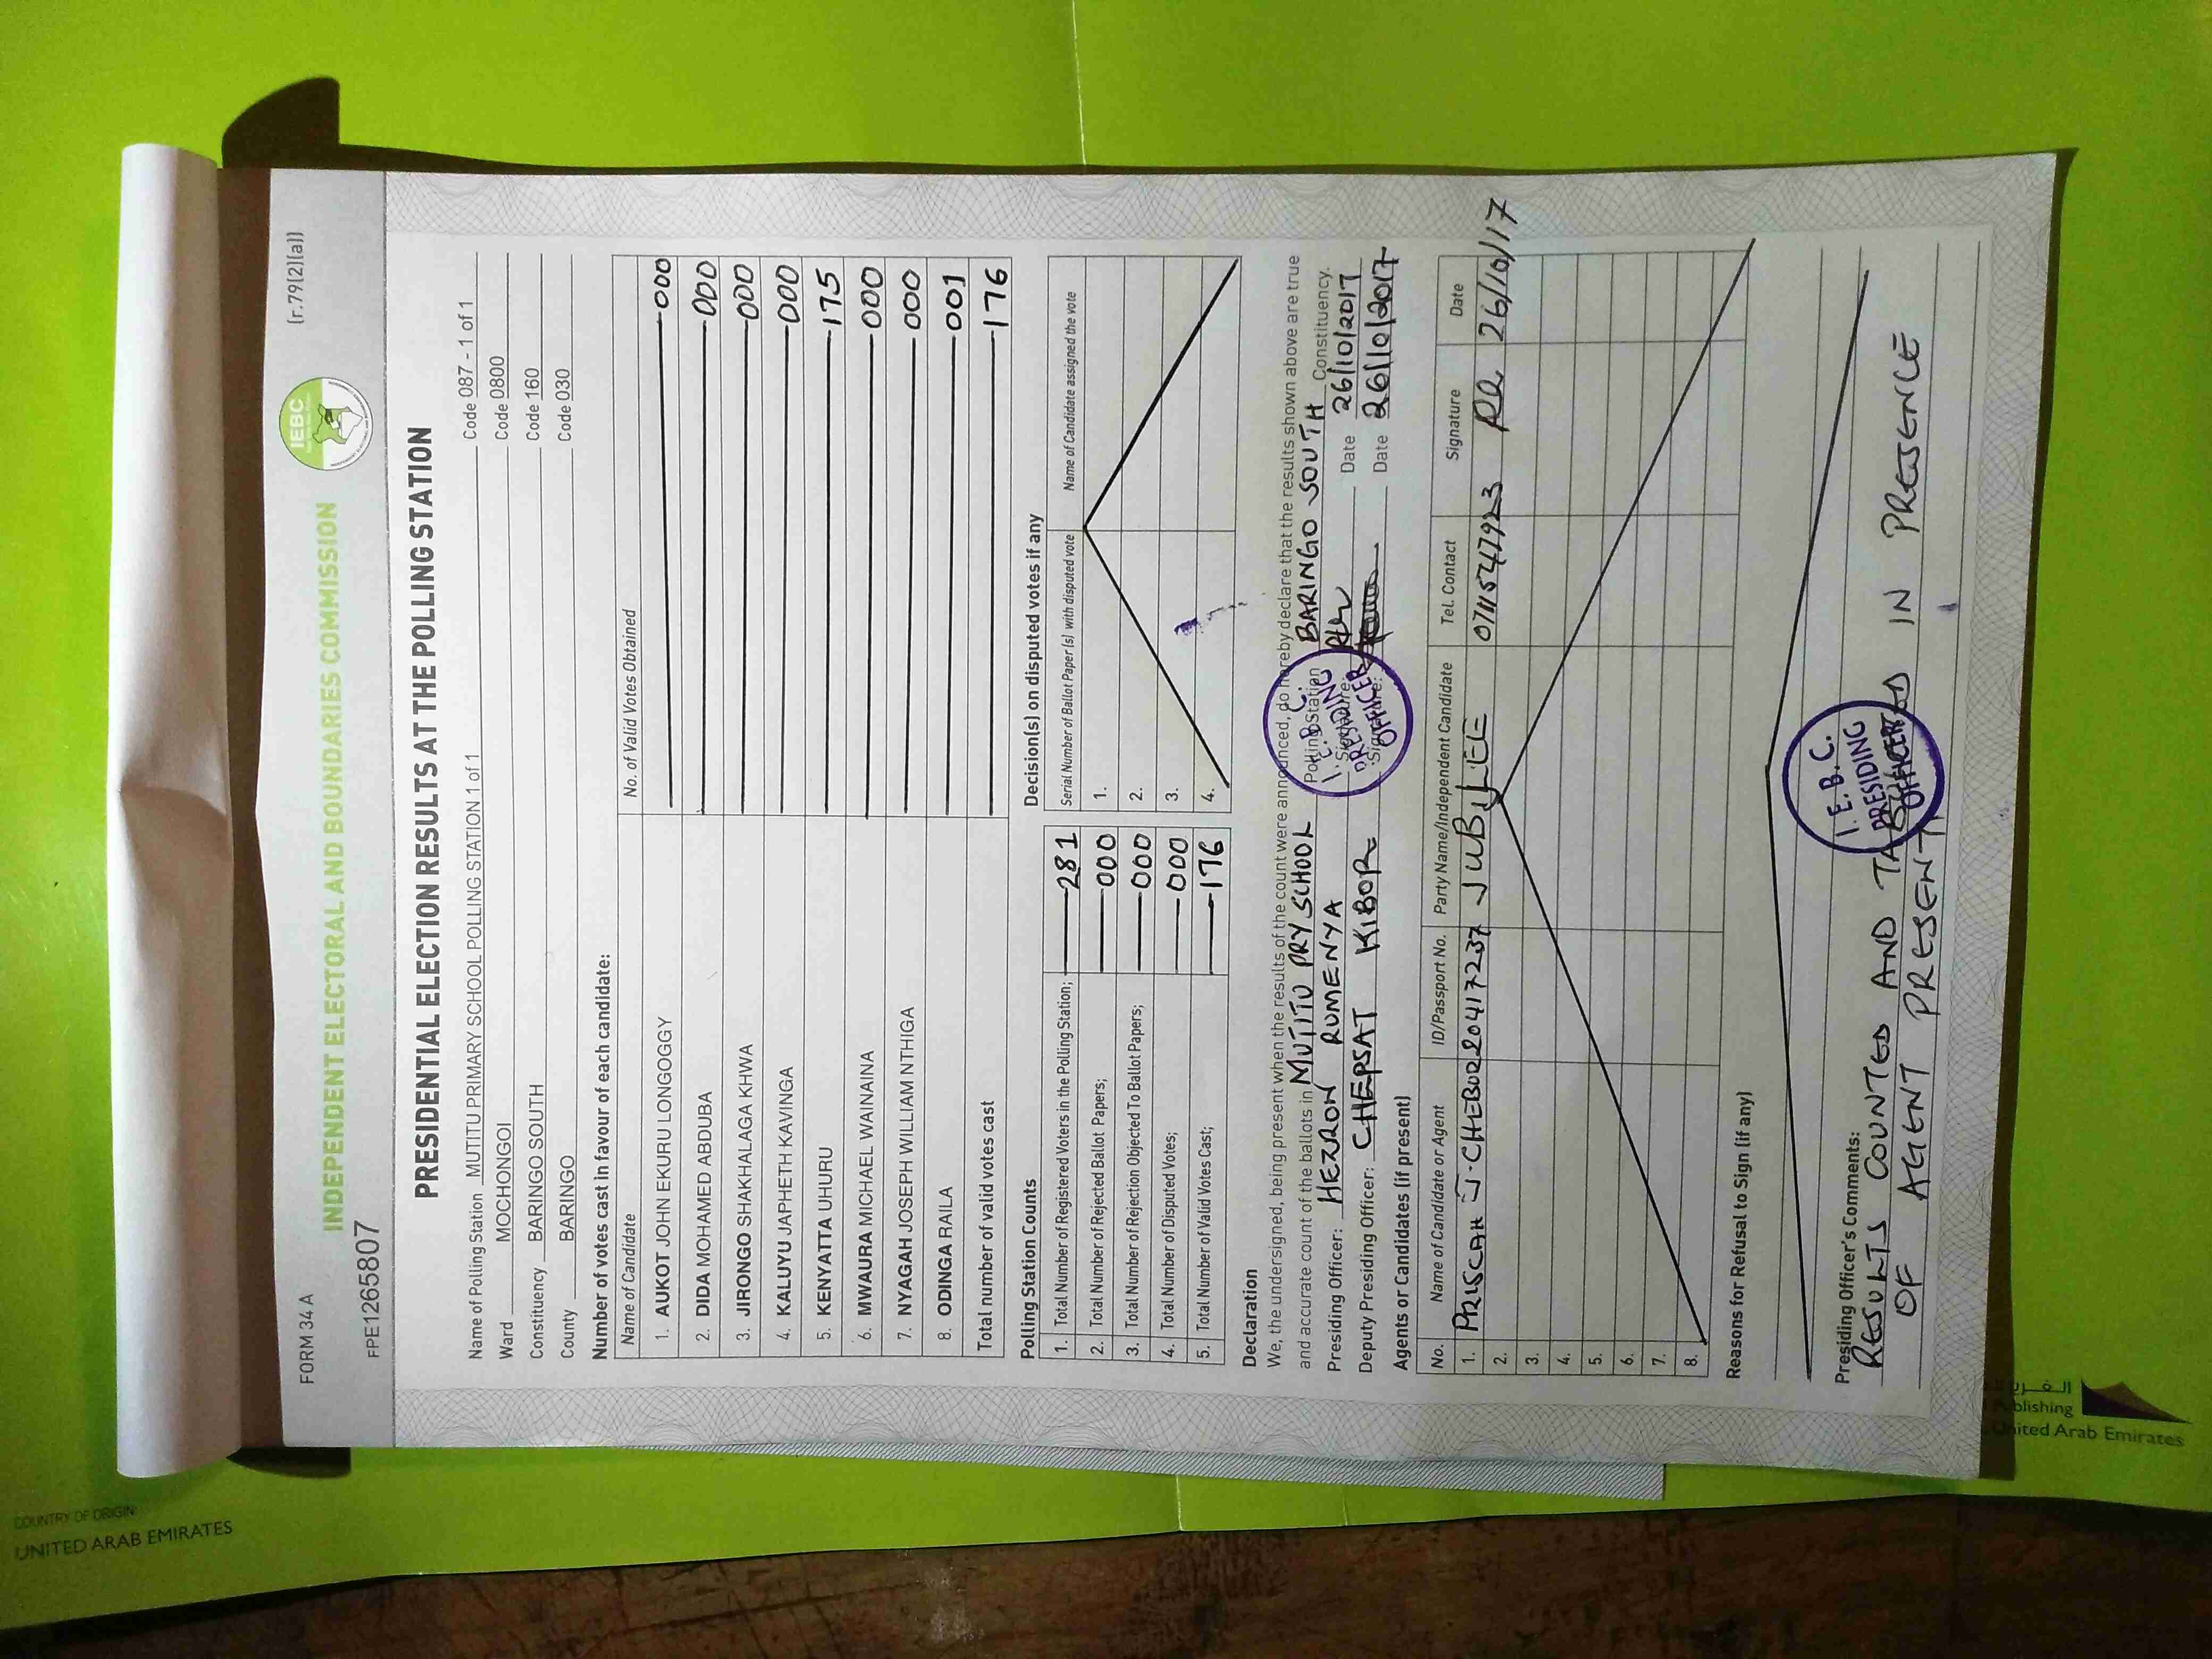 FORM 34 A
(r.79(2)(a))
IEBC
INDEPENDENT ELECTORAL AND BOUNDARIES COMMISSION
FPE1265807
PRESIDENTIAL ELECTION RESULTS AT THE POLLING STATION
Name of Polling Station MUTITU PRIMARY SCHOOL POLLING STATION 1 of 1 Code 087 - 1 of 1
Ward MOCHONGOI Code 0800
Constituency BARINGO SOUTH Code 160
County BARINGO Code 030
Number of votes cast in favour of each candidate:
Name of Candidate No. of Valid Votes Obtained
1. AUKOT JOHN EKURU LONGOGGY 000
2. DIDA MOHAMED ABDUBA 000
3. JIRONGO SHAKHALAGA KHWA 000
4. KALUYU JAPHETH KAVINGA 000
5. KENYATTA UHURU 175
6. MWAURA MICHAEL WAINAINA 000
7. NYAGAH JOSEPH WILLIAM NTHIGA 000
8. ODINGA RAILA 001
Total number of valid votes cast 176
Polling Station Counts
1. Total Number of Registered Voters in the Polling Station; 281
2. Total Number of Rejected Ballot Papers; 000
3. Total Number of Rejection Objected To Ballot Papers; 000
4. Total Number of Disputed Votes; 000
5. Total Number of Valid Votes Cast; 176
Decision(s) on disputed votes if any
Serial Number of Ballot Paper (s) with disputed vote Name of Candidate assigned the vote
1.
2.
3.
4.
Declaration
We, the undersigned, being present when the results of the count were announced, do hereby declare that the results shown above are true
and accurate count of the ballots in MUTITU PRY SCHOOL Polling Station BARINGO SOUTH Constituency.
Presiding Officer: HEZRON RUMENYA Signature: Date 26/10/2017
Deputy Presiding Officer: CHEPSAT KIBOR Signature: Date 26/10/2017
I.E.B.C.
PRESIDING
OFFICER
Agents or Candidates (if present)
No. Name of Candidate or Agent ID/Passport No. Party Name/Independent Candidate Tel. Contact Signature Date
1. PRISCAH J. JUBILEE 0711547923 26/10/17
2.
3.
4.
5.
6.
7.
8.
Reasons for Refusal to Sign (if any)
Presiding Officer's Comments:
RESULTS COUNTED AND IN PRESENCE
OF AGENT PRESENT
I.E.B.C.
PRESIDING
OFFICER
COUNTRY OF ORIGIN:
UNITED ARAB EMIRATES
United Arab Emirates